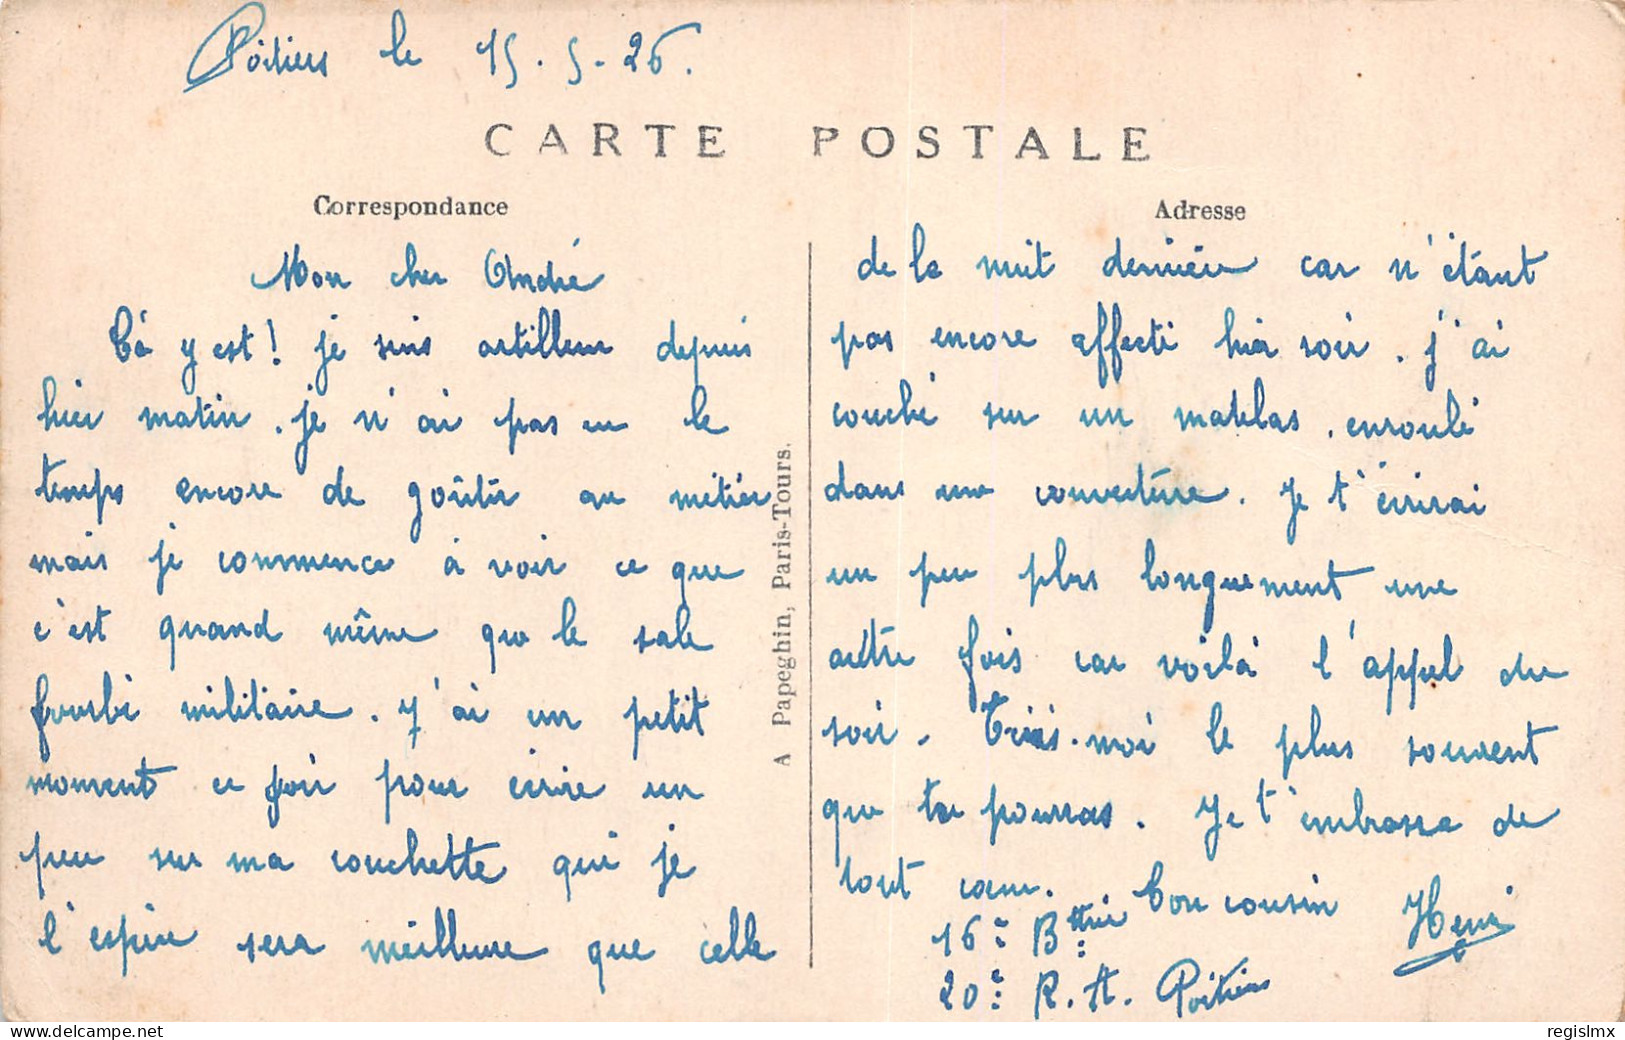 Poitiers le 15.5.26.
CARTE POSTALE
Correspondance
Mon cher André
Cà y est! je suis artilleur depuis
hier matin. je n'ai pas eu le
temps encore de goûter au métier
mais je commence à voir ce que
c'est quand même que le sale
fourbi militaire. J'ai un petit
moment ce soir pour écrire un
peu sur ma couchette qui je
l'espère sera meilleure que celle
A Papeghin, Paris-Tours.
Adresse
de la nuit dernière car n'étant
pas encore affecté hier soir. j'ai
couché sur un matelas. enroulé
dans une couverture. Je t'écrirai
un peu plus longuement une
autre fois car voilà l'appel du
soir. Ecris-moi le plus souvent
que tu pourras. Je t'embrasse de
tout cœur. Ton cousin Henri
16e Btterie
20e R.A. Poitiers
delcampe.net
regislmx